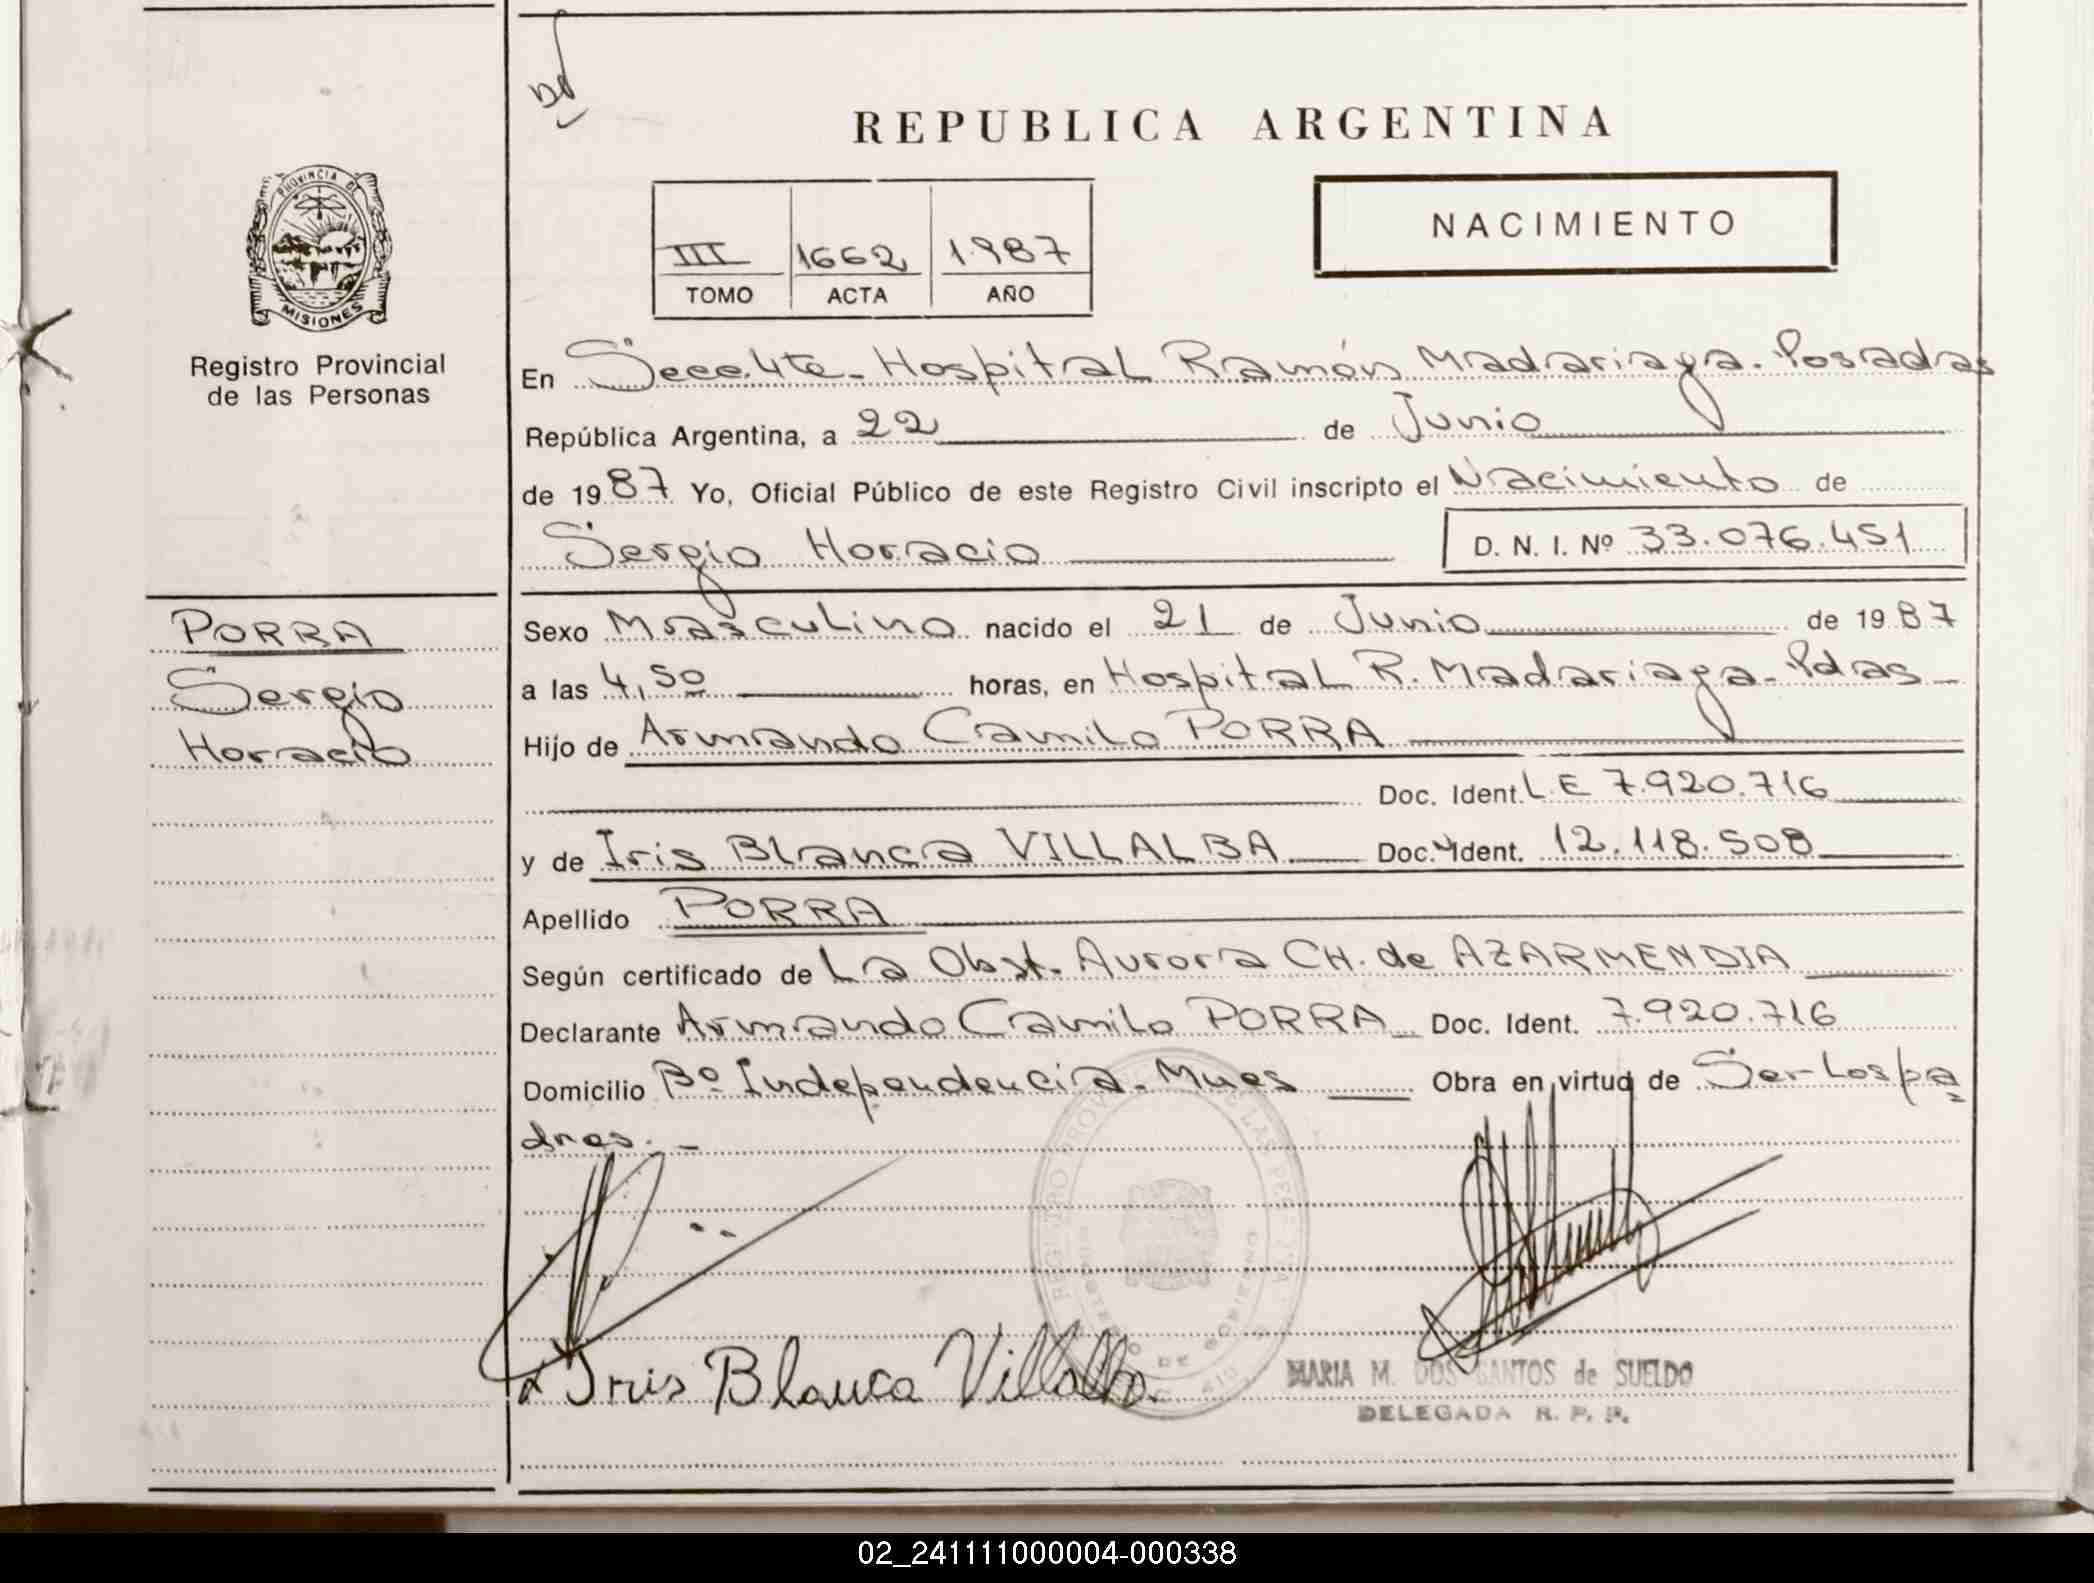 REPUBLICA ARGENTINA
NACIMIENTO
III 1662 1987
TOMO ACTA AÑO
PROVINCIA DE
MISIONES
Registro Provincial
de las Personas
En Secc. 4ta- Hospital Ramón Madariaga. Posadas
República Argentina, a 22 de Junio
de 1987 Yo, Oficial Público de este Registro Civil inscripto el Nacimiento de
Sergio Horacio D. N. I. Nº 33.076.451
PORRA
Sergio
Horacio
Sexo Masculino nacido el 21 de Junio de 1987
a las 4,50 horas, en Hospital R. Madariaga- Pdas
Hijo de Armando Camilo PORRA
Doc. Ident. L.E 7.920.716
y de Iris Blanca VILLALBA Doc. Ident. 12.118.508
Apellido PORRA
Según certificado de La Obst. Aurora CH. de AZARMENDIA
Declarante Armando Camilo PORRA Doc. Ident. 7.920.716
Domicilio Bº Independencia. Mnes Obra en virtud de Ser Los pa
dres.-
Iris Blanca Villalba
MARIA M. DOS SANTOS de SUELDO
DELEGADA R. P. P.
02_241111000004-000338